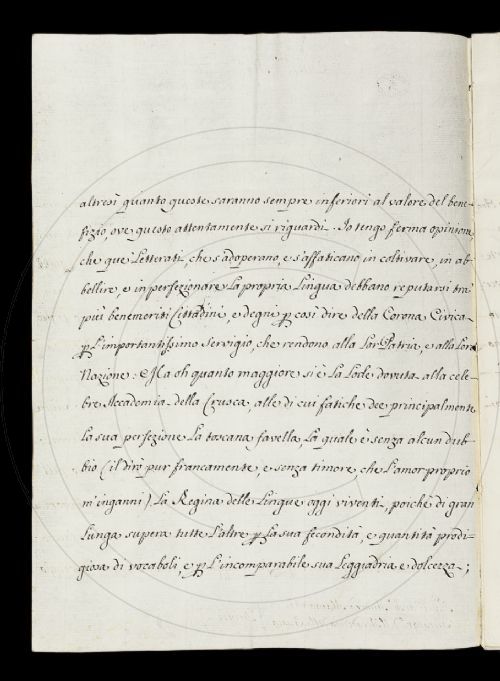 altresì quanto queste saranno sempre inferiori al valore del bene-
fizio, ove questo attentamente si riguardi. Io tengo ferma opinione,
che que' Letterati, che s'adoperano, e s'affaticano in coltivare, in ab-
bellire, e in perfezionare la propria Lingua debbano reputarsi tra'
più benemeriti Cittadini, e degni ꝑ così dire della Corona Civica
ꝑ l'importantissimo servigio, che rendono alla Lor Patria, e alla Loro
Nazione: Ma oh quanto maggiore si è la Lode dovuta alla cele-
bre Accademia della Crusca, alle di cui fatiche dee principalmente
la sua perfezione la toscana favella, la quale è senza alcun dub-
bio (il dirò pur francamente, e senza timore, che l'amor proprio
m'inganni) La Regina delle Lingue oggi viventi, poichè di gran
lunga supera tutte l'altre ꝑ la sua fecondità, e quantità prodi-
giosa di vocaboli, e ꝑ l'incomparabile sua leggiadria e dolcezza;